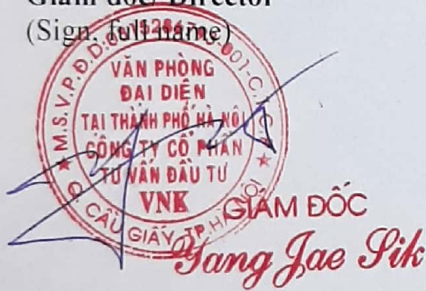 Giám đốc Director
(Sign, full name)
VĂN PHÒNG
ĐẠI DIỆN
TẠI THÀNH PHỐ HÀ NỘI
CÔNG TY CỔ PHẦN
TƯ VẤN ĐẦU TƯ
VNK
Q. CẦU GIẤY - TP. HÀ NỘI
GIÁM ĐỐC
Yang Jae Sik